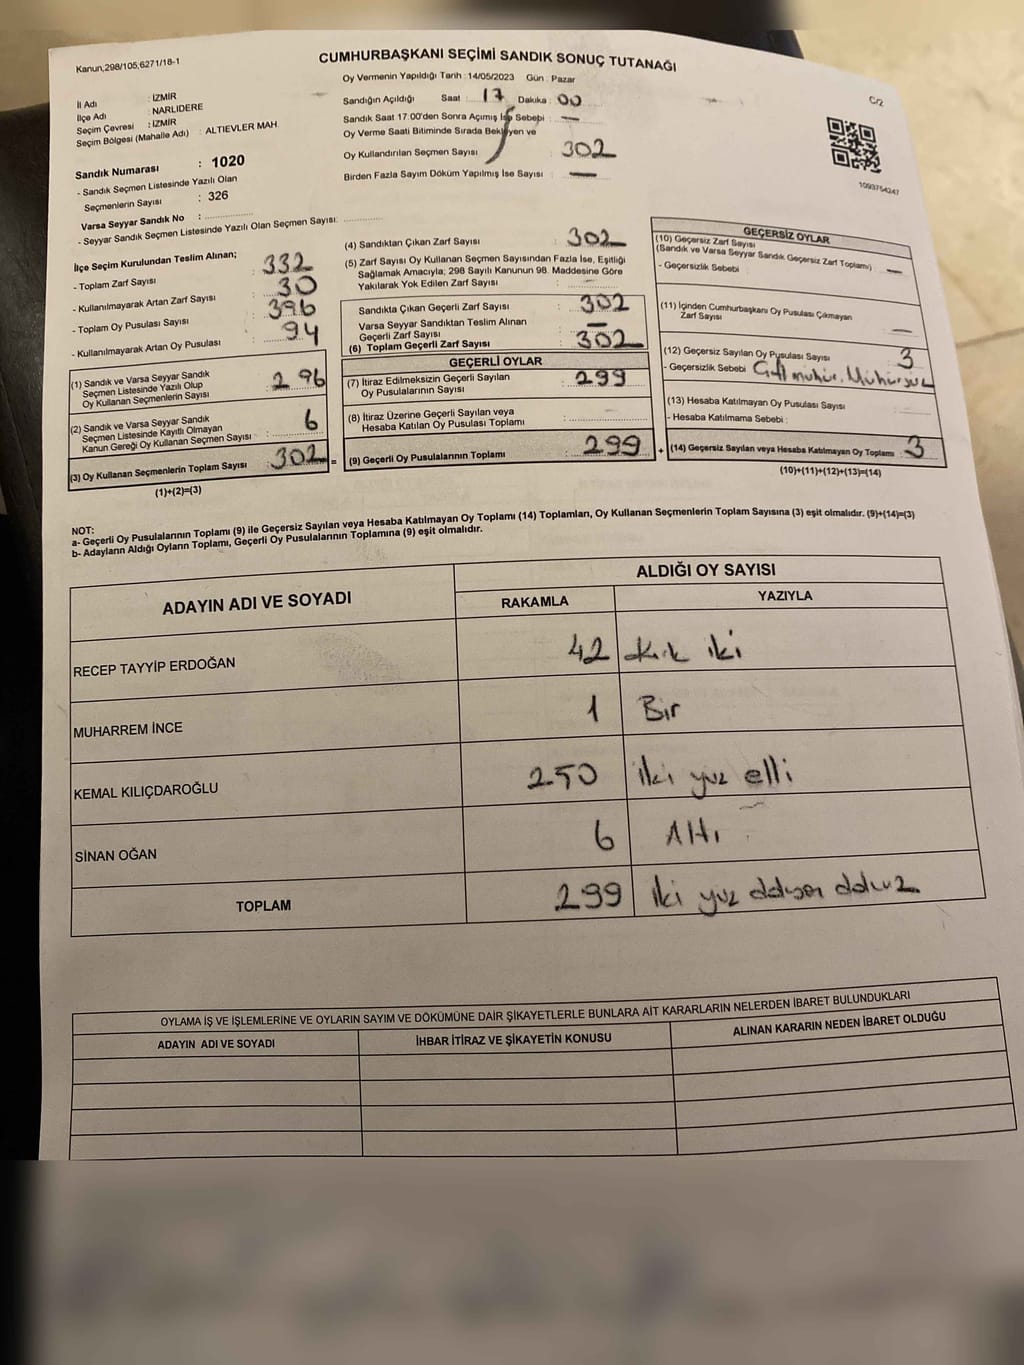 Kanun;298/105;6271/18-1
CUMHURBAŞKANI SEÇİMİ SANDIK SONUÇ TUTANAĞI
C/2
İl Adı : İZMİR
İlçe Adı : NARLIDERE
Seçim Çevresi : İZMİR
Seçim Bölgesi (Mahalle Adı) : ALTIEVLER MAH
Sandık Numarası : 1020
- Sandık Seçmen Listesinde Yazılı Olan
Seçmenlerin Sayısı : 326
Varsa Seyyar Sandık No :
- Seyyar Sandık Seçmen Listesinde Yazılı Olan Seçmen Sayısı:
Oy Vermenin Yapıldığı Tarih : 14/05/2023 Gün : Pazar
Sandığın Açıldığı Saat : 17 Dakika : 00
Sandık Saat 17:00'den Sonra Açımış İse Sebebi : —
Oy Verme Saati Bitiminde Sırada Bekleyen ve
Oy Kullandırılan Seçmen Sayısı 302
Birden Fazla Sayım Döküm Yapılmış İse Sayısı : —
1093754247
İlçe Seçim Kurulundan Teslim Alınan;
- Toplam Zarf Sayısı : 332
- Kullanılmayarak Artan Zarf Sayısı : 30
- Toplam Oy Pusulası Sayısı : 396
- Kullanılmayarak Artan Oy Pusulası : 94
(1) Sandık ve Varsa Seyyar Sandık
Seçmen Listesinde Yazılı Olup
Oy Kullanan Seçmenlerin Sayısı : 296
(2) Sandık ve Varsa Seyyar Sandık
Seçmen Listesinde Kayıtlı Olmayan
Kanun Gereği Oy Kullanan Seçmen Sayısı : 6
(3) Oy Kullanan Seçmenlerin Toplam Sayısı : 302 =
(1)+(2)=(3)
(4) Sandıktan Çıkan Zarf Sayısı : 302
(5) Zarf Sayısı Oy Kullanan Seçmen Sayısından Fazla İse, Eşitliği
Sağlamak Amacıyla; 298 Sayılı Kanunun 98. Maddesine Göre
Yakılarak Yok Edilen Zarf Sayısı :
Sandıkta Çıkan Geçerli Zarf Sayısı : 302
Varsa Seyyar Sandıktan Teslim Alınan
Geçerli Zarf Sayısı : —
(6) Toplam Geçerli Zarf Sayısı : 302
GEÇERLİ OYLAR
(7) İtiraz Edilmeksizin Geçerli Sayılan
Oy Pusulalarının Sayısı : 299
(8) İtiraz Üzerine Geçerli Sayılan veya
Hesaba Katılan Oy Pusulası Toplamı :
(9) Geçerli Oy Pusulalarının Toplamı : 299 +
GEÇERSİZ OYLAR
(10) Geçersiz Zarf Sayısı
(Sandık ve Varsa Seyyar Sandık Geçersiz Zarf Toplamı) : —
- Geçersizlik Sebebi :
(11) İçinden Cumhurbaşkanı Oy Pusulası Çıkmayan
Zarf Sayısı : —
(12) Geçersiz Sayılan Oy Pusulası Sayısı : 3
- Geçersizlik Sebebi : Çift mühür, Mühürsüz
(13) Hesaba Katılmayan Oy Pusulası Sayısı :
- Hesaba Katılmama Sebebi :
(14) Geçersiz Sayılan veya Hesaba Katılmayan Oy Toplamı : 3
(10)+(11)+(12)+(13)=(14)
NOT:
a- Geçerli Oy Pusulalarının Toplamı (9) ile Geçersiz Sayılan veya Hesaba Katılmayan Oy Toplamı (14) Toplamları, Oy Kullanan Seçmenlerin Toplam Sayısına (3) eşit olmalıdır. (9)+(14)=(3)
b- Adayların Aldığı Oyların Toplamı, Geçerli Oy Pusulalarının Toplamına (9) eşit olmalıdır.
ADAYIN ADI VE SOYADI
ALDIĞI OY SAYISI
RAKAMLA YAZIYLA
RECEP TAYYİP ERDOĞAN 42 Kırk iki
MUHARREM İNCE 1 Bir
KEMAL KILIÇDAROĞLU 250 iki yuz elli
SİNAN OĞAN 6 Altı
TOPLAM 299 iki yuz doksan dokuz
OYLAMA İŞ VE İŞLEMLERİNE VE OYLARIN SAYIM VE DÖKÜMÜNE DAİR ŞİKAYETLERLE BUNLARA AİT KARARLARIN NELERDEN İBARET BULUNDUKLARI
ADAYIN ADI VE SOYADI İHBAR İTİRAZ VE ŞİKAYETİN KONUSU ALINAN KARARIN NEDEN İBARET OLDUĞU